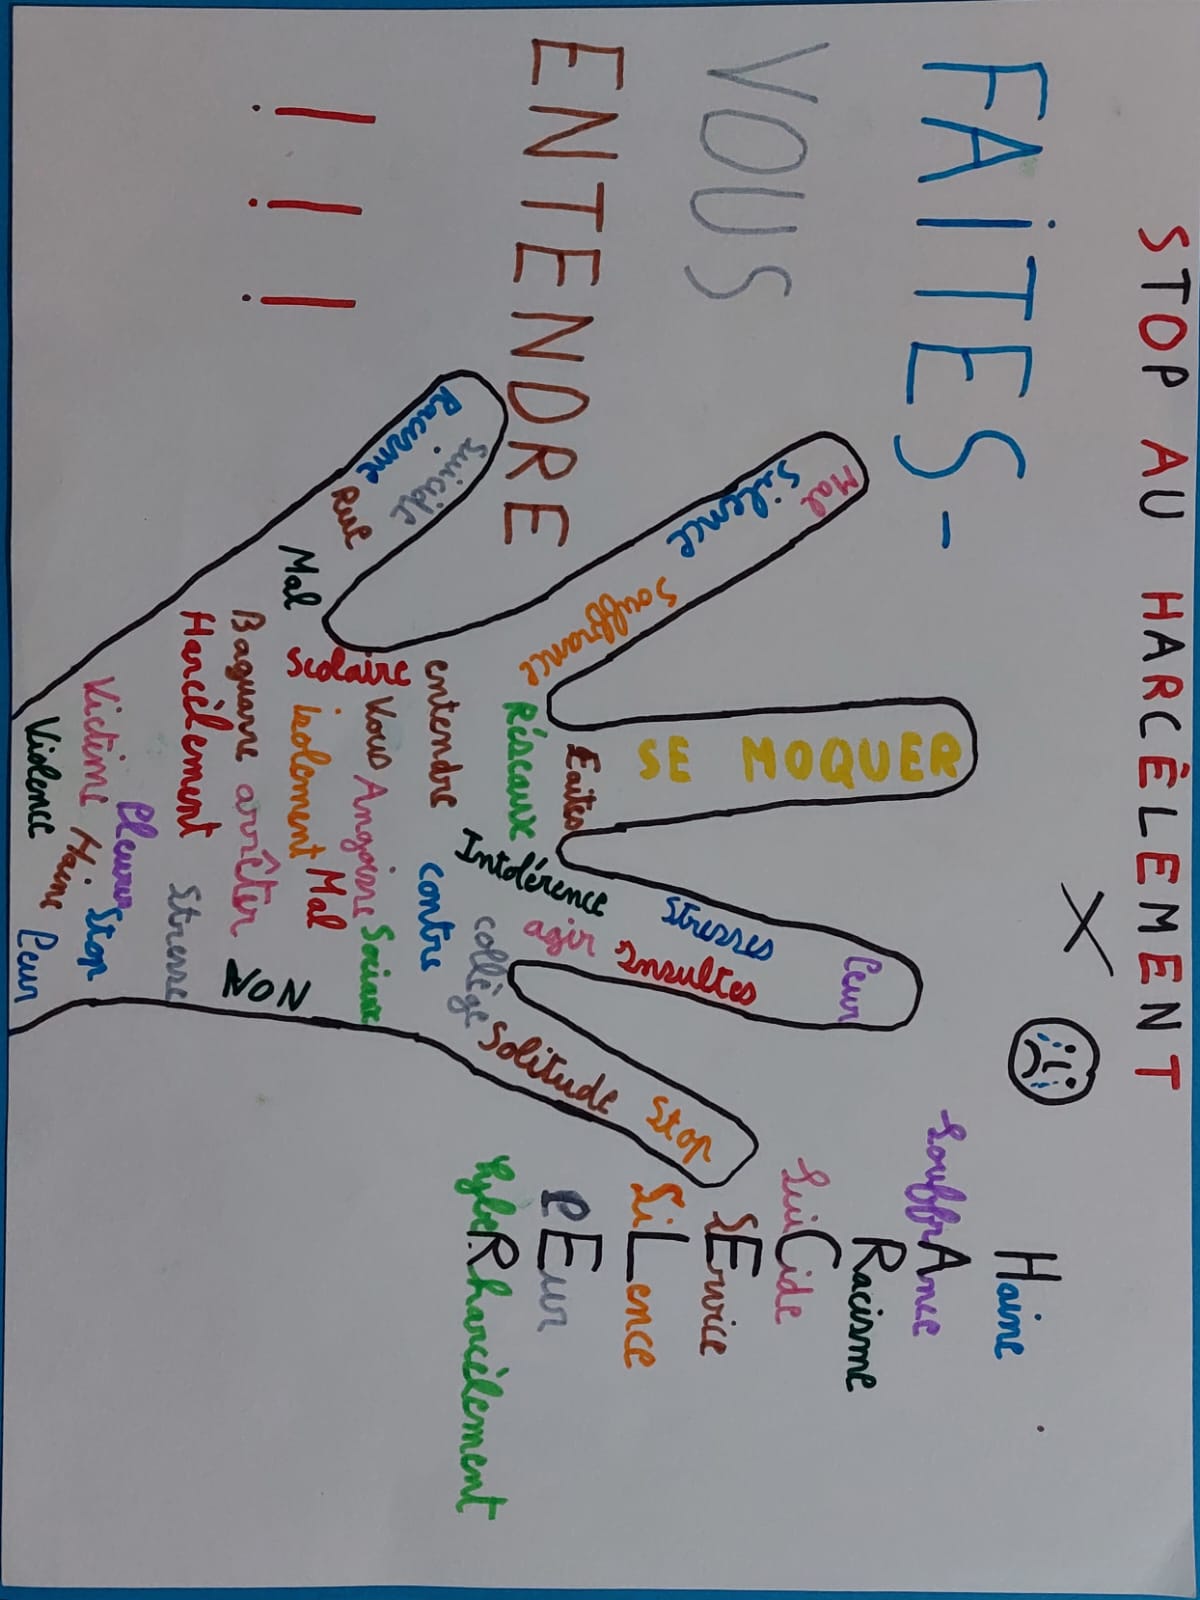 STOP AU HARCÉLEMENT
FAiTES-
VOUS
ENTENDRE
! ! !
Mal
Silence
Souffrance
SE MOQUER
Peur
Stresses
Insultes
agir
Stop
Solitude
Racisme
Suicide
Rue
Mal
Faites
Réseaux
Intolérence
collège
entendre
contre
Vous Angoisse Sociaux
Scolaire
isolement Mal
Baguarre arrêter
NON
Harcèlement
Stresse
Pleurer
Stop
Victime Haine
Violence
Peur
Haine
SouffrAnce
Racisme
SuiCide
SErvice
SiLence
PEur
CybeRharcèlement